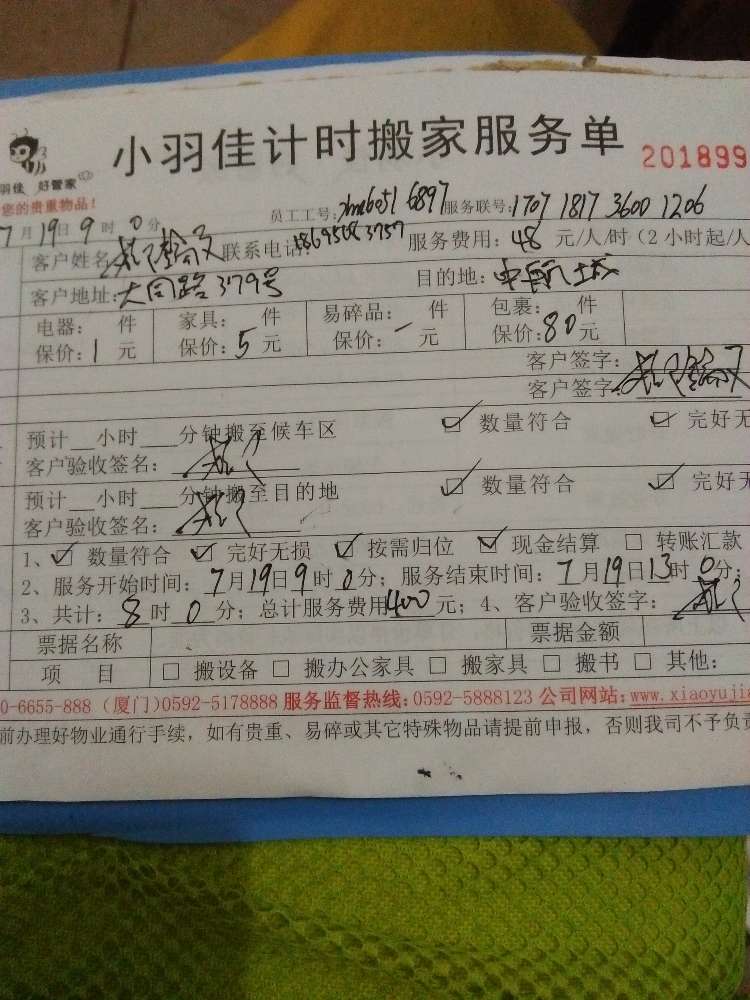 小羽佳计时搬家服务单
201899
羽佳 好管家
您的贵重物品！
员工工号: 6051 6897 服务联号:1707 1817 3600 1206
7月19日9时0分
客户姓名: 联系电话: 服务费用: 48 元/人/时（2小时起/人
客户地址:大同路379号 目的地:中航城
电器： 件 家具： 件 易碎品： 件 包裹： 件
保价:1元 保价:5元 保价:一元 保价:80元
客户签字：
客户签字:
预计__小时___分钟搬至候车区 ☑数量符合 ☑完好无
客户验收签名：
预计__小时___分钟搬至目的地 ☑数量符合 ☑完好无
客户验收签名：
1、☑数量符合 ☑完好无损 ☑按需归位 ☑现金结算 □转账汇款
2、服务开始时间：7月19日9时0分；服务结束时间：7月19日13时0分；
3、共计：8时0分；总计服务费用400元；4、客户验收签字：
票据名称 票据金额
项 目 □搬设备 □搬办公家具 □搬家具 □搬书 □其他：
0-6655-888（厦门）0592-5178888 服务监督热线:0592-5888123 公司网站:www.xiaoyujia
前办理好物业通行手续，如有贵重、易碎或其它特殊物品请提前申报，否则我司不予负责